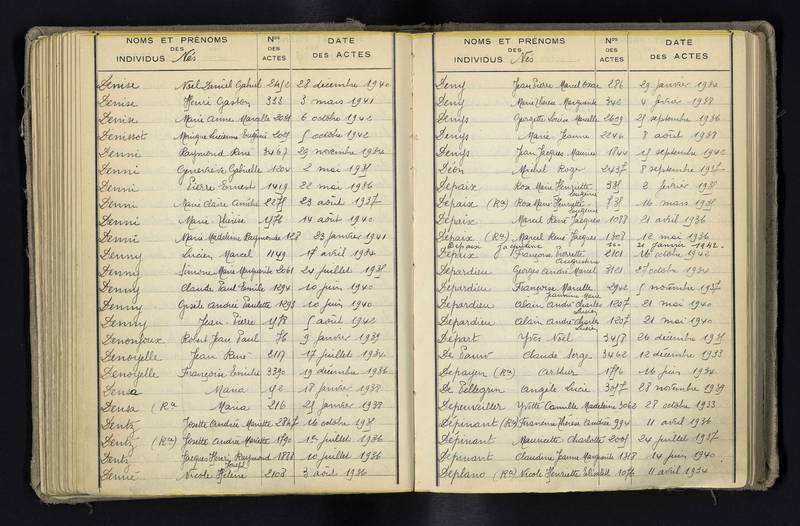 NOMS ET PRÉNOMS
DES
INDIVIDUS Nés
Nos
DES
ACTES
DATE
DES ACTES
Denise Noël Daniel Gabriel 28 décembre 1940
Denise Henri Gaston 333 3 mars 1941
Denise Marie Anne Marcelle 6 octobre 1942
Denissot Monique Lucienne Eugénie 2009 5 octobre 1942
Denni Raymond René 3467 29 novembre 1934
Denni Geneviève Gabrielle 1204 2 mai
Denni Pierre Ernest 1419 22 mai 1936
Denni Marie Claire 2278 23 août 1937
Denni Marie Thérèse 14 août 1940
Denni Marie Madeleine Raymonde 128 23 janvier 1941
Denny Lucien Marcel 1149 17 avril 1934
Denny Simone Marie Marguerite 2061 24 juillet
Denny Claude Paul Emile 1294 10 juin 1940
Denny Gisèle Andrée Paulette 1293 10 juin 1940
Denny Jean Pierre août 1942
Denonjoux Robert Jean Paul 76 9 janvier 1939
Denoyelle Jean René 2117 17 juillet 1934
Denoyelle Françoise Emilie 3390 19 décembre 1936
Densa Maria 18 janvier 1938
Densa (Rn) Maria 216 21 janvier 1938
Dentz Josette Andrée Mariette 2847 16 octobre
Dentz (Rn) Josette Andrée Mariette 1790 1er juillet 1936
Dentz Jacques Henri Raymond 1888 10 juillet 1936
Joseph
Nicole Hélène 2108 3 août 1936
NOMS ET PRÉNOMS
DES
INDIVIDUS Nés
Nos
DES
ACTES
DATE
DES ACTES
Deny Jean Pierre Marcel 286 29 janvier 1934
Deny Marie Louise Marguerite 342 4 février 1938
Denys Georgette Louise Marcelle 2609 21 septembre 1936
Denys Marie Jeanne 2246 8 août 1938
Denys Jean Jacques Maurice 1844 18 septembre 1942
Déon Michel Roger 2437 8 septembre 1937
Depaix Rose Marie Henriette 2 février
Eugénie
Depaix (Rn) Rose Marie Henriette 16 mars
Eugénie
Depaix Marcel René Jacques 1088 21 avril 1936
Depaix (Rn) Marcel René Jacques 1308 12 mai 1936
Depaix Jacqueline 21 janvier 1942
Depaix Françoise Pierrette 2101 16 octobre 1942
Augustine
Depardieu Georges André Marcel 3101 27 octobre 1934
Depardieu Françoise Marcelle 2942 5 novembre 1937
Jeannine Marie
Depardieu Alain André Charles 1207 21 mai 1940
Lucien
Depardieu Alain André Charles 1207 21 mai 1940
Lucien
Départ Yves Noël 3458 26 décembre
De Pauw Claude Serge 3462 12 décembre 1933
Depayen (Rn) Arthur 16 juin 1934
De Pellegrin Angèle Lucie 3057 28 novembre 1939
Depenveiller Yvette Camille Madeleine 3062 28 octobre 1933
Dépinant (Rn) Francine Thérèse Andrée 994 11 avril 1936
Dépinant Mauricette Charlotte 24 juillet 1937
Dépinant Claudine Jeanne Marguerite 1318 14 juin 1940
Deplano (Rn) Nicole Henriette Elisabeth 1076 11 avril 1934